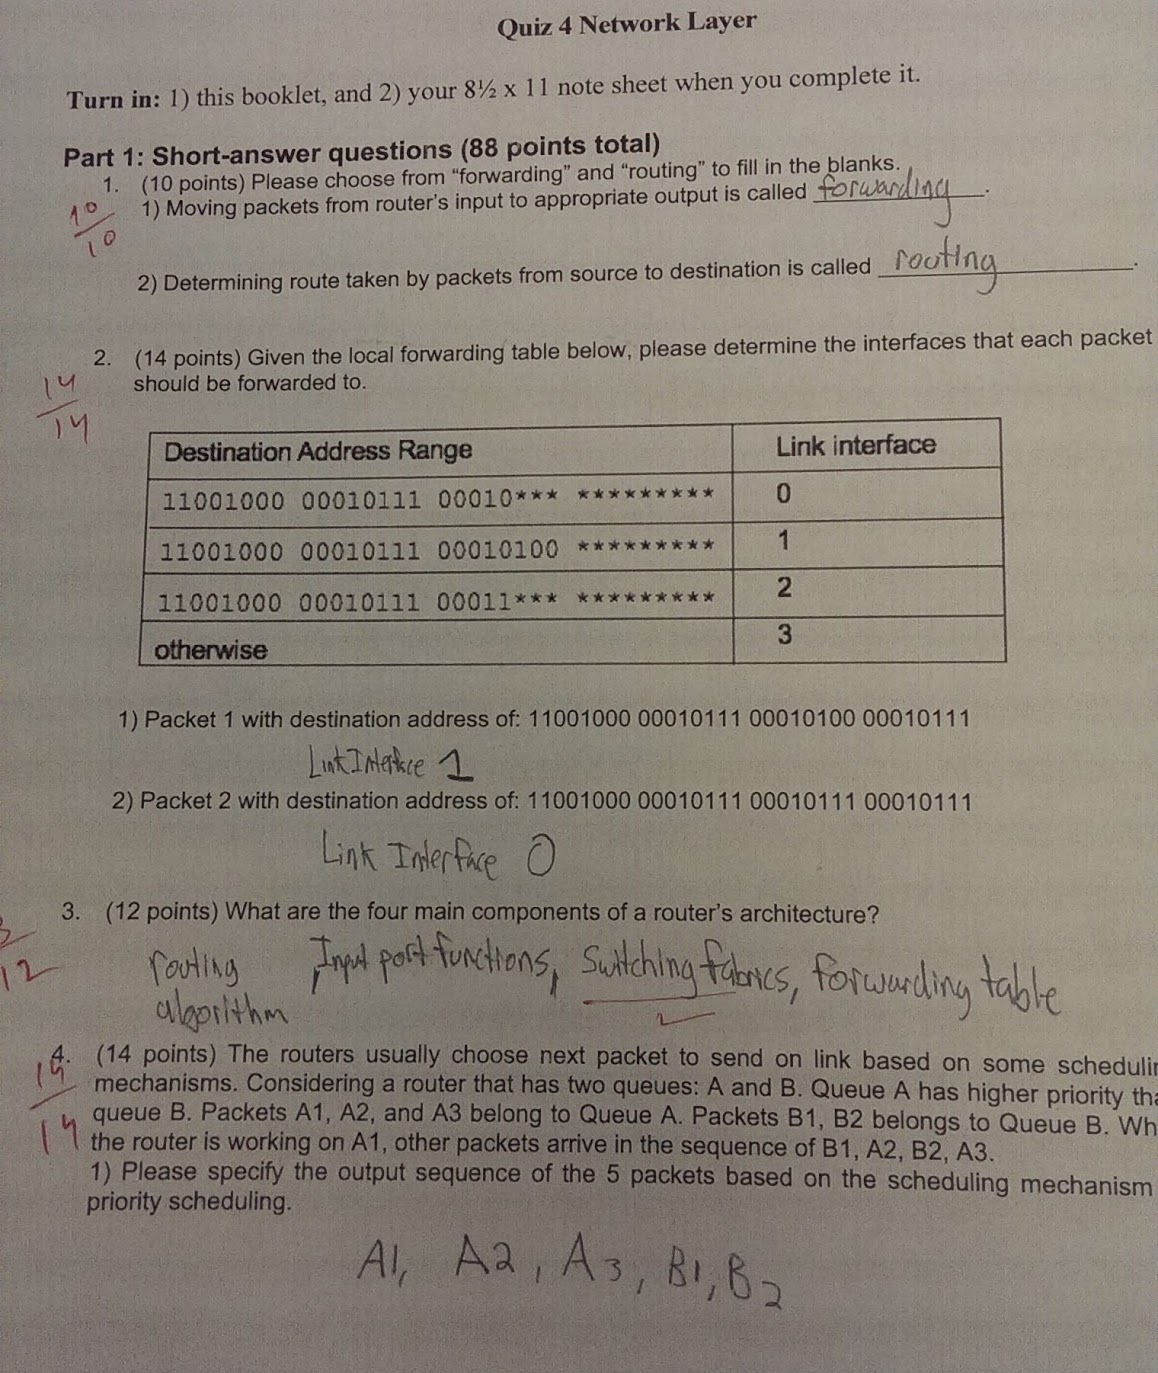 Quiz 4 Network Layer
Turn in: 1) this booklet, and 2) your 8½ x 11 note sheet when you complete it.
Part 1: Short-answer questions (88 points total)
1. (10 points) Please choose from “forwarding” and “routing” to fill in the blanks.
1) Moving packets from router's input to appropriate output is called forwarding.
10/10
2) Determining route taken by packets from source to destination is called routing.
2. (14 points) Given the local forwarding table below, please determine the interfaces that each packet
should be forwarded to.
14/14
Destination Address Range Link interface
11001000 00010111 00010*** ********* 0
11001000 00010111 00010100 ********* 1
11001000 00010111 00011*** ********* 2
otherwise 3
1) Packet 1 with destination address of: 11001000 00010111 00010100 00010111
Link Interface 1
2) Packet 2 with destination address of: 11001000 00010111 00010111 00010111
Link Interface 0
3. (12 points) What are the four main components of a router's architecture?
12
routing algorithm, Input port functions, Switching fabrics, forwarding table
4. (14 points) The routers usually choose next packet to send on link based on some
mechanisms. Considering a router that has two queues: A and B. Queue A has higher priority
queue B. Packets A1, A2, and A3 belong to Queue A. Packets B1, B2 belongs to Queue B.
14
the router is working on A1, other packets arrive in the sequence of B1, A2, B2, A3.
1) Please specify the output sequence of the 5 packets based on the scheduling mechanism
priority scheduling.
A1, A2, A3, B1, B2